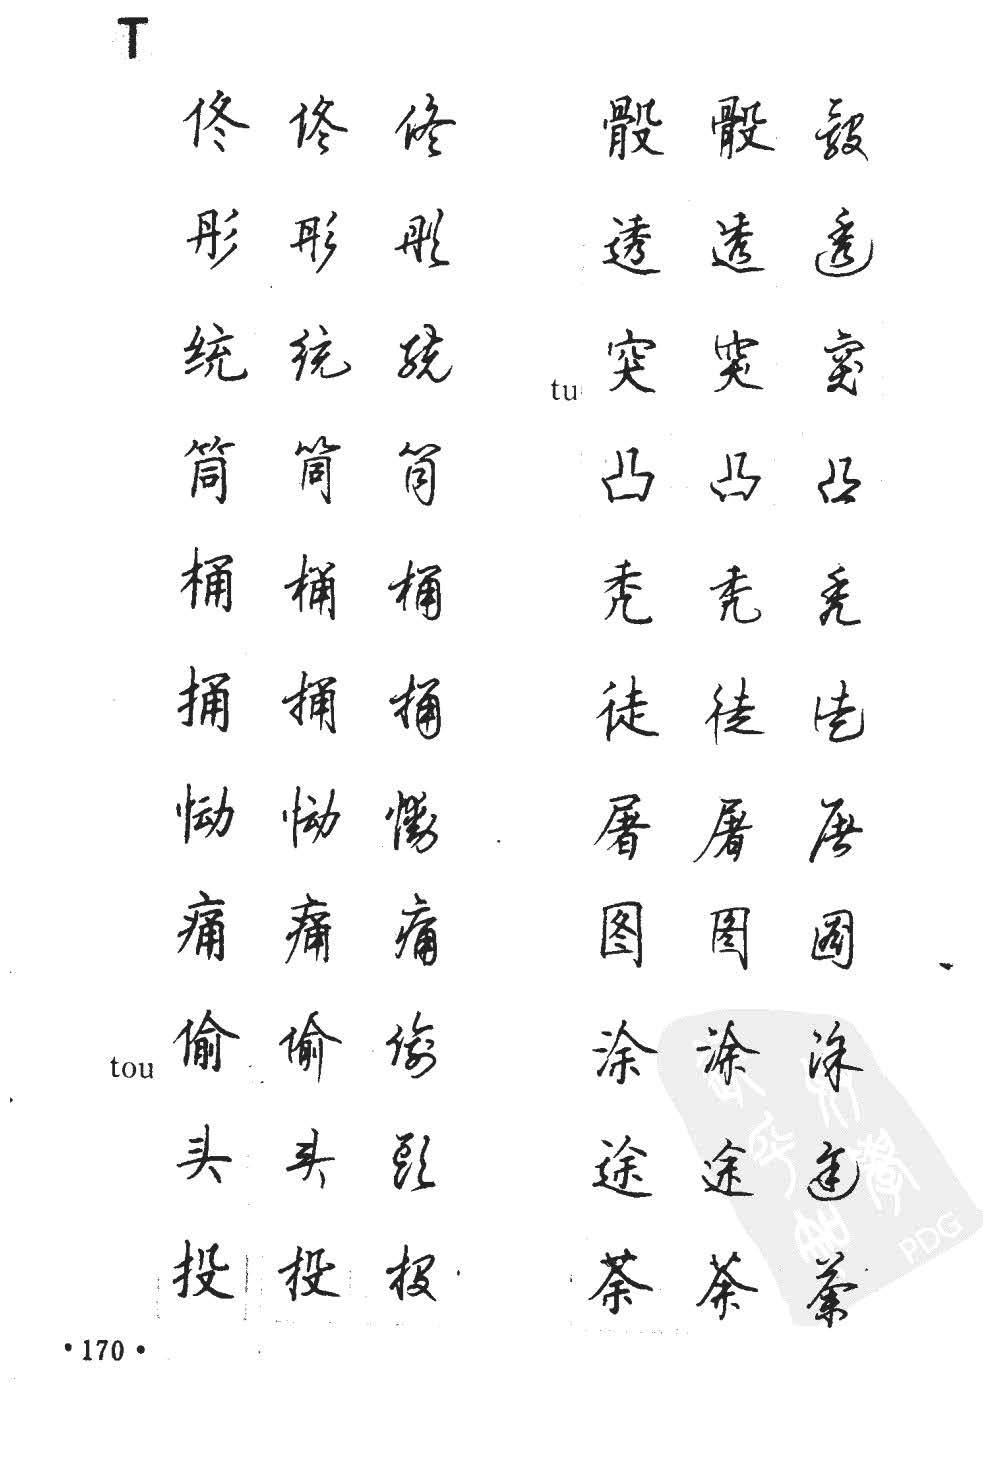 T
佟 佟 佟
彤 彤 彤
统 统 统
筒 筒 筒
桶 桶 桶
捅 捅 捅
恸 恸 慟
痛 痛 痛
tou 偷 偷 偷
头 头 頭
投 投 投
骰 骰 骰
透 透 透
tu 突 突 突
凸 凸 凸
秃 秃 秃
徒 徒 徒
屠 屠 屠
图 图 圖
涂 涂 涂
途 途 途
荼 荼 荼
·170·
PDG